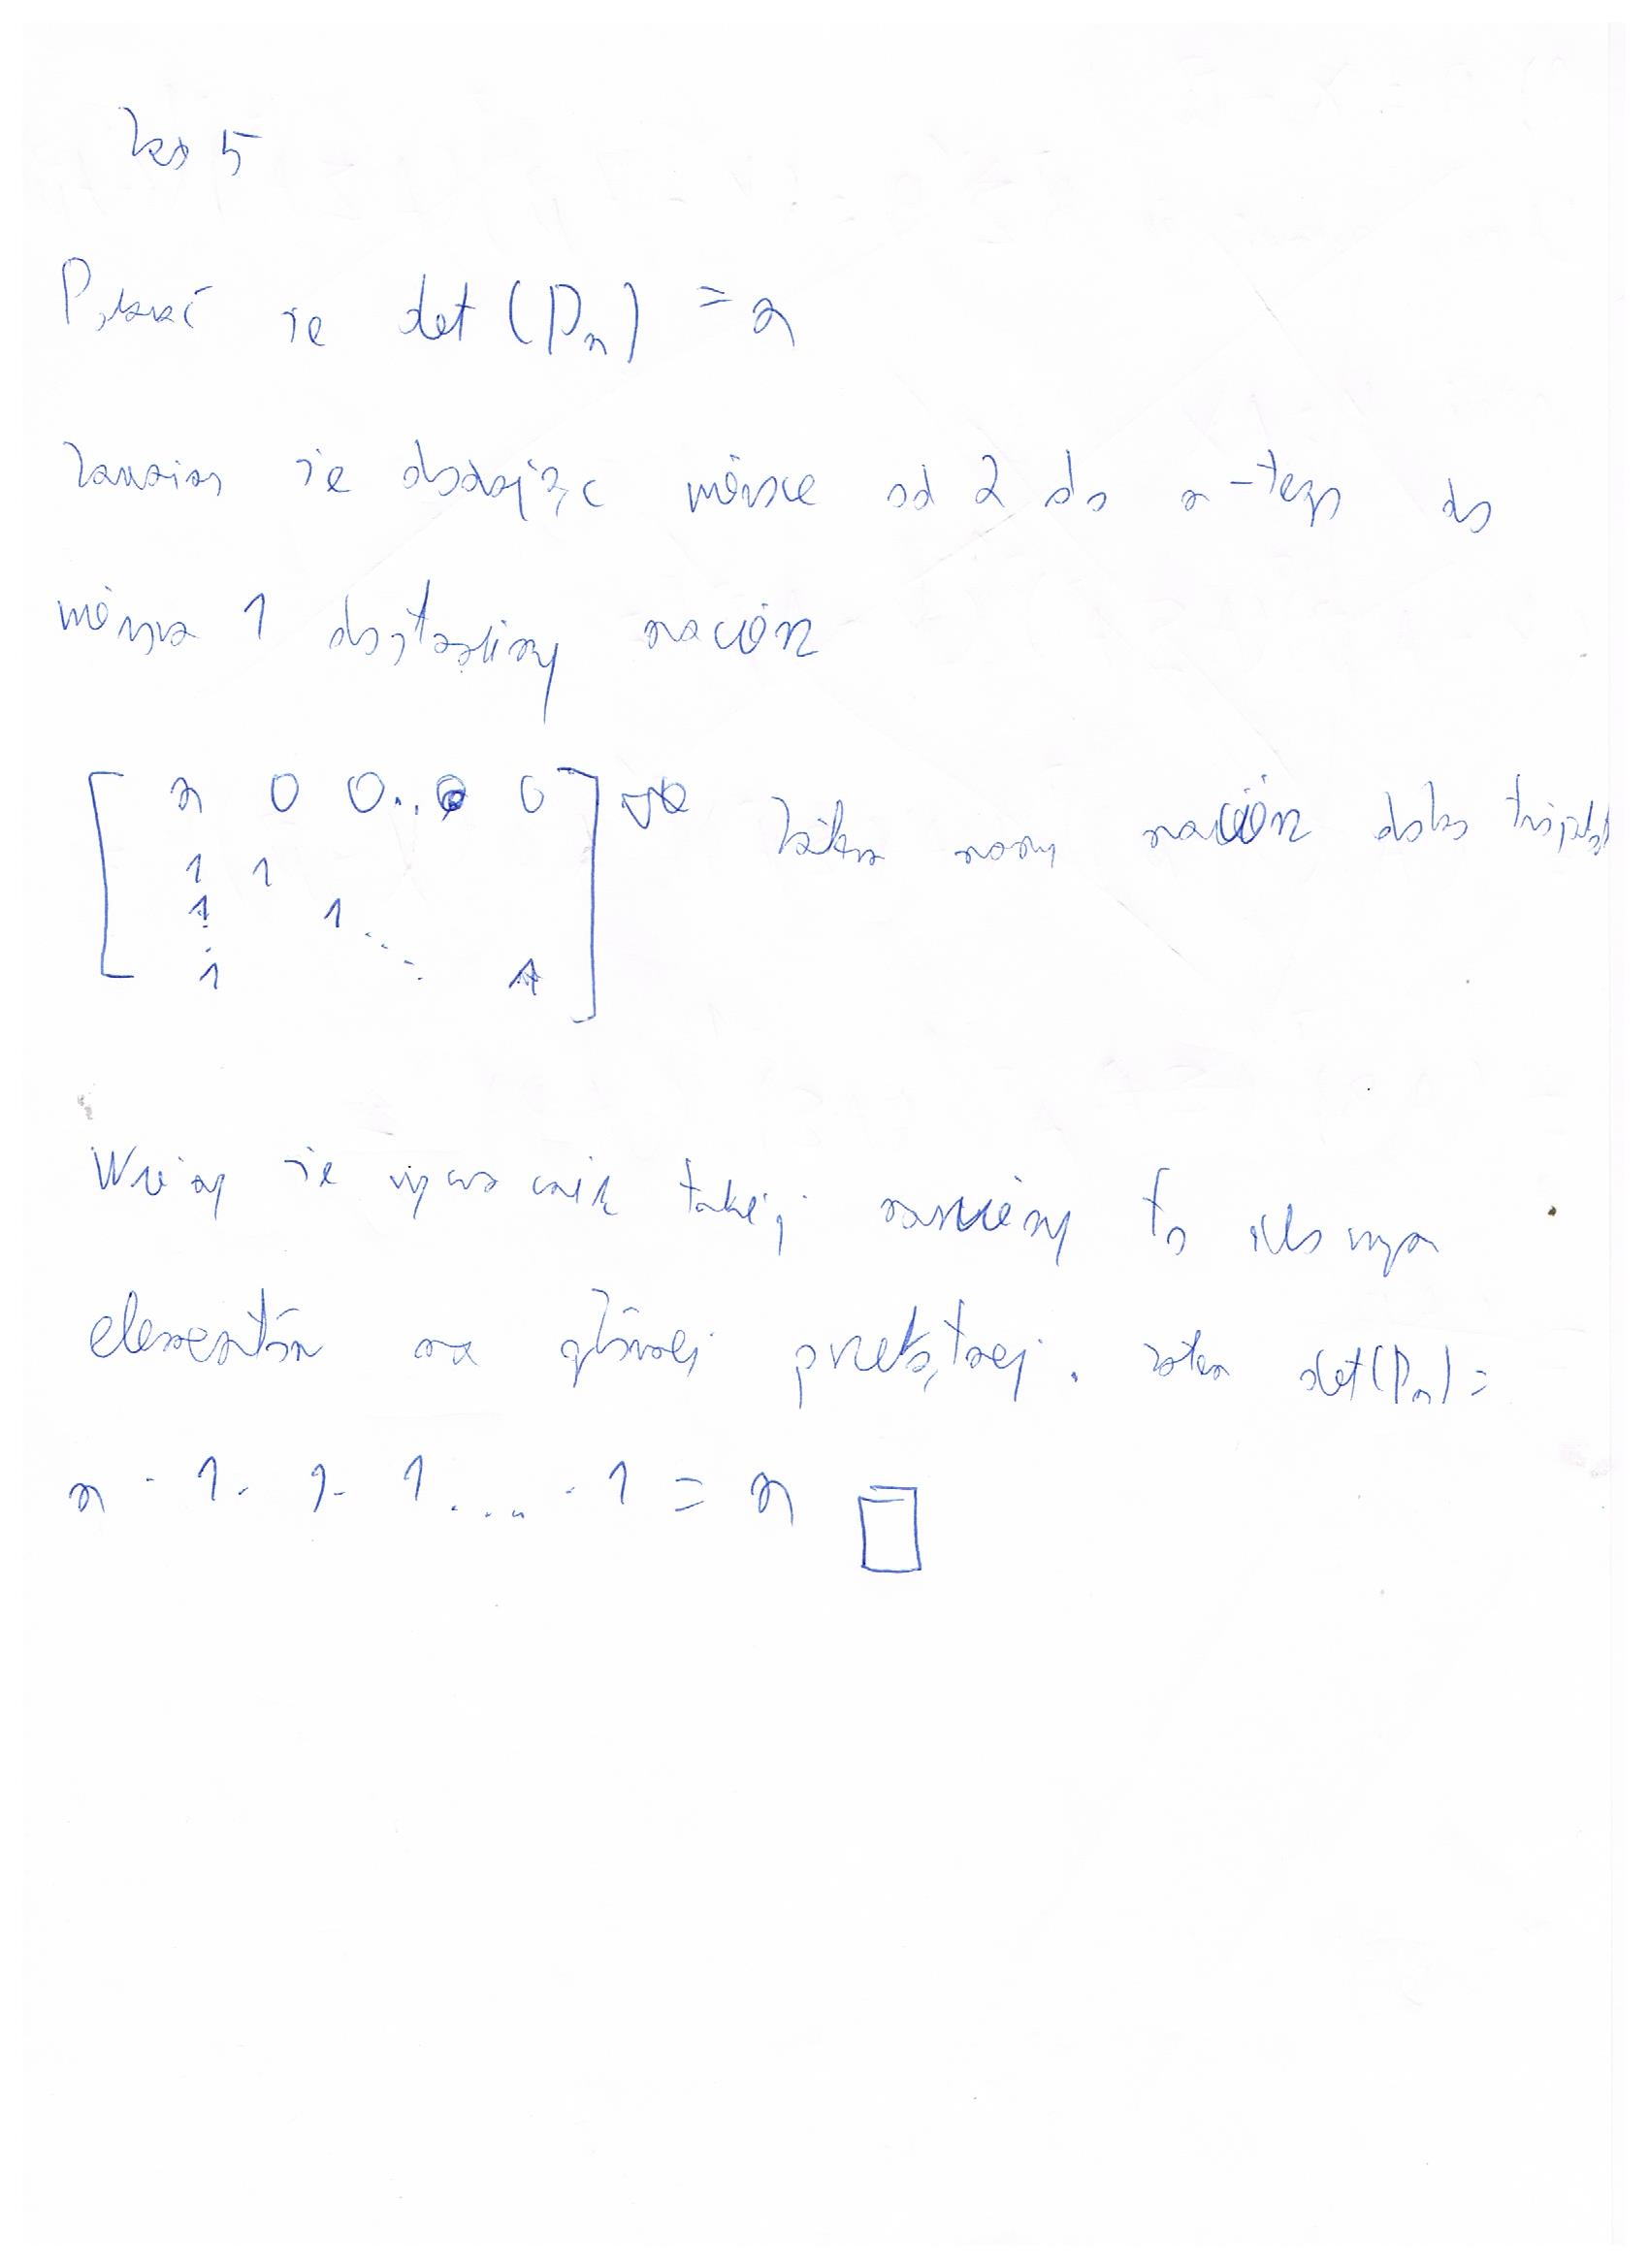 Zad 5
Pokazać że det (Pn) = n
Zauważam że dodając wiersze od 2 do n-tego do
wiersza 1 dostaniemy macierz
n 0 0 .. 0 0 Zatem mamy macierz dolno trójkątną
1 1
1 1 ..
1 ... 1
Wiemy że wyznacznik takiej macierzy to iloczyn
elementów na głównej przekątnej. Zatem det(Pn) =
n · 1 · 1 · 1 .... · 1 = n □